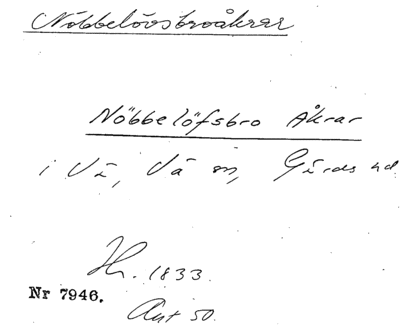 Nöbbelövsbroåkrar
Nöbbelöfsbro Åkrar
i Vä, Vä sn, Gärds hd
Hr. 1833.
Nr 7946.
Ant 50.